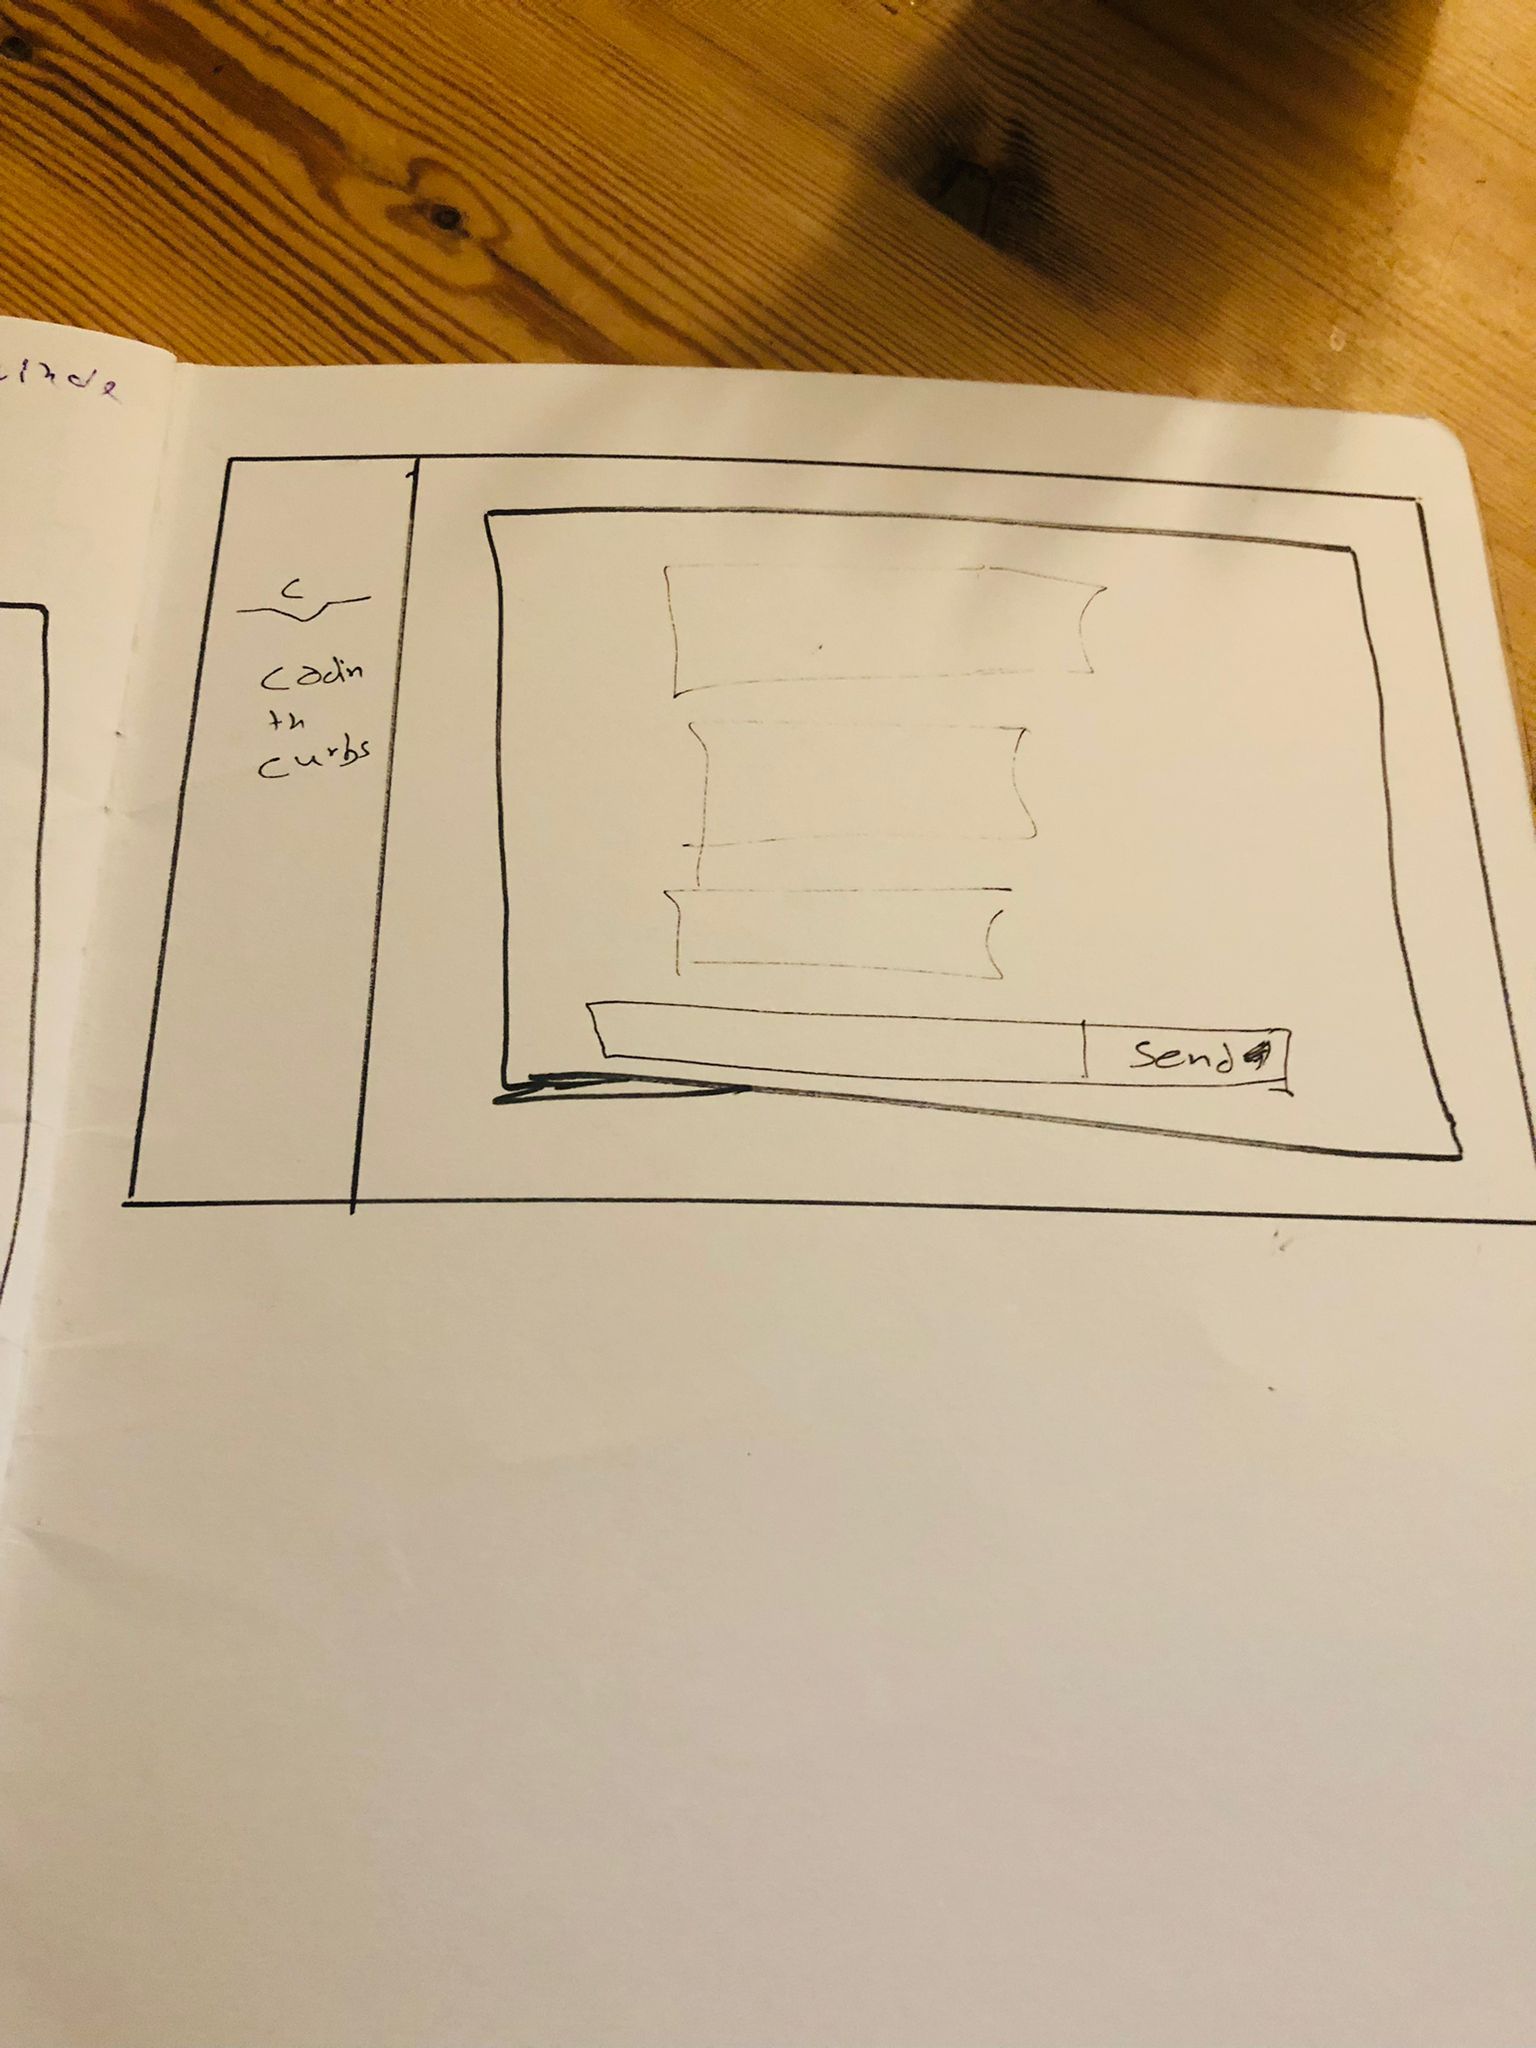 C
codin
th
curbs
Send